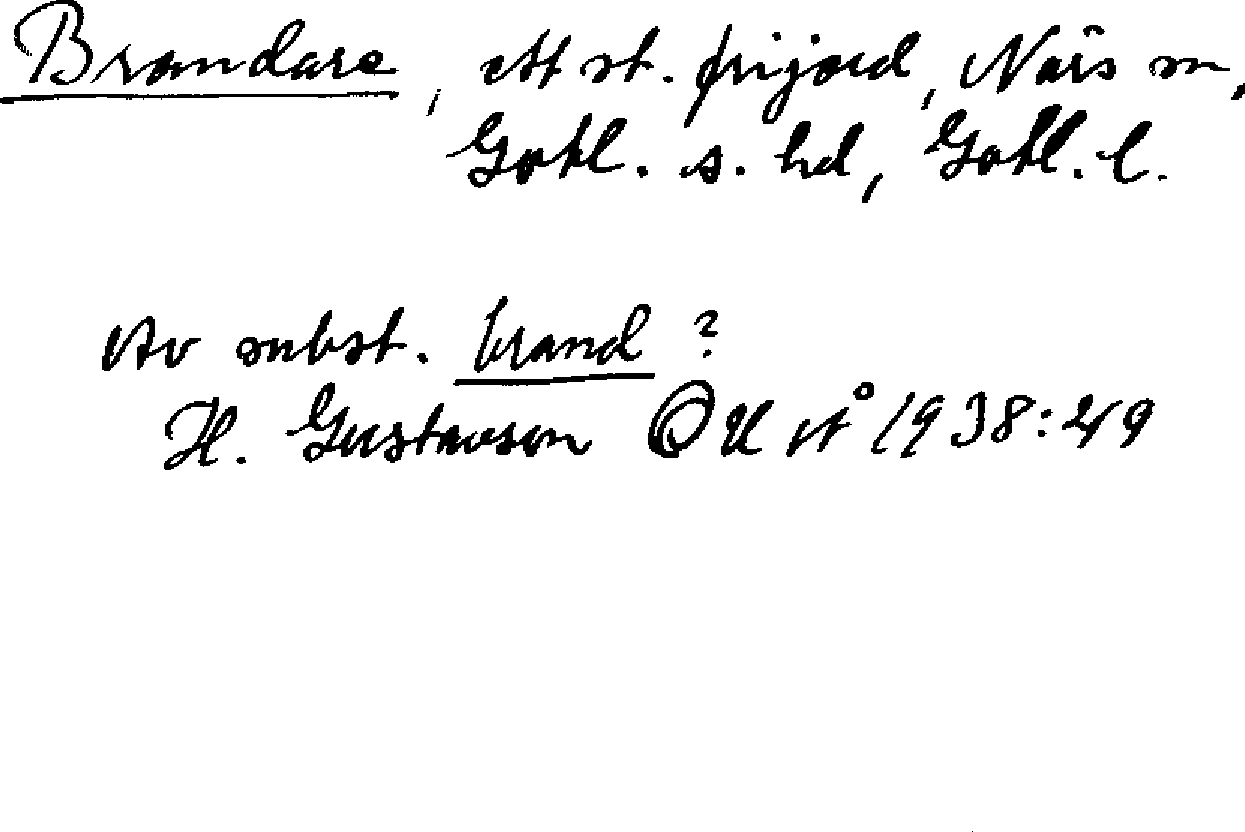 Brandare, ett st. frijord, När sn,
Gotl. s. hd, Gotl. l.
Av subst. brand ?
H. Gustavson OUÅ 1938:49